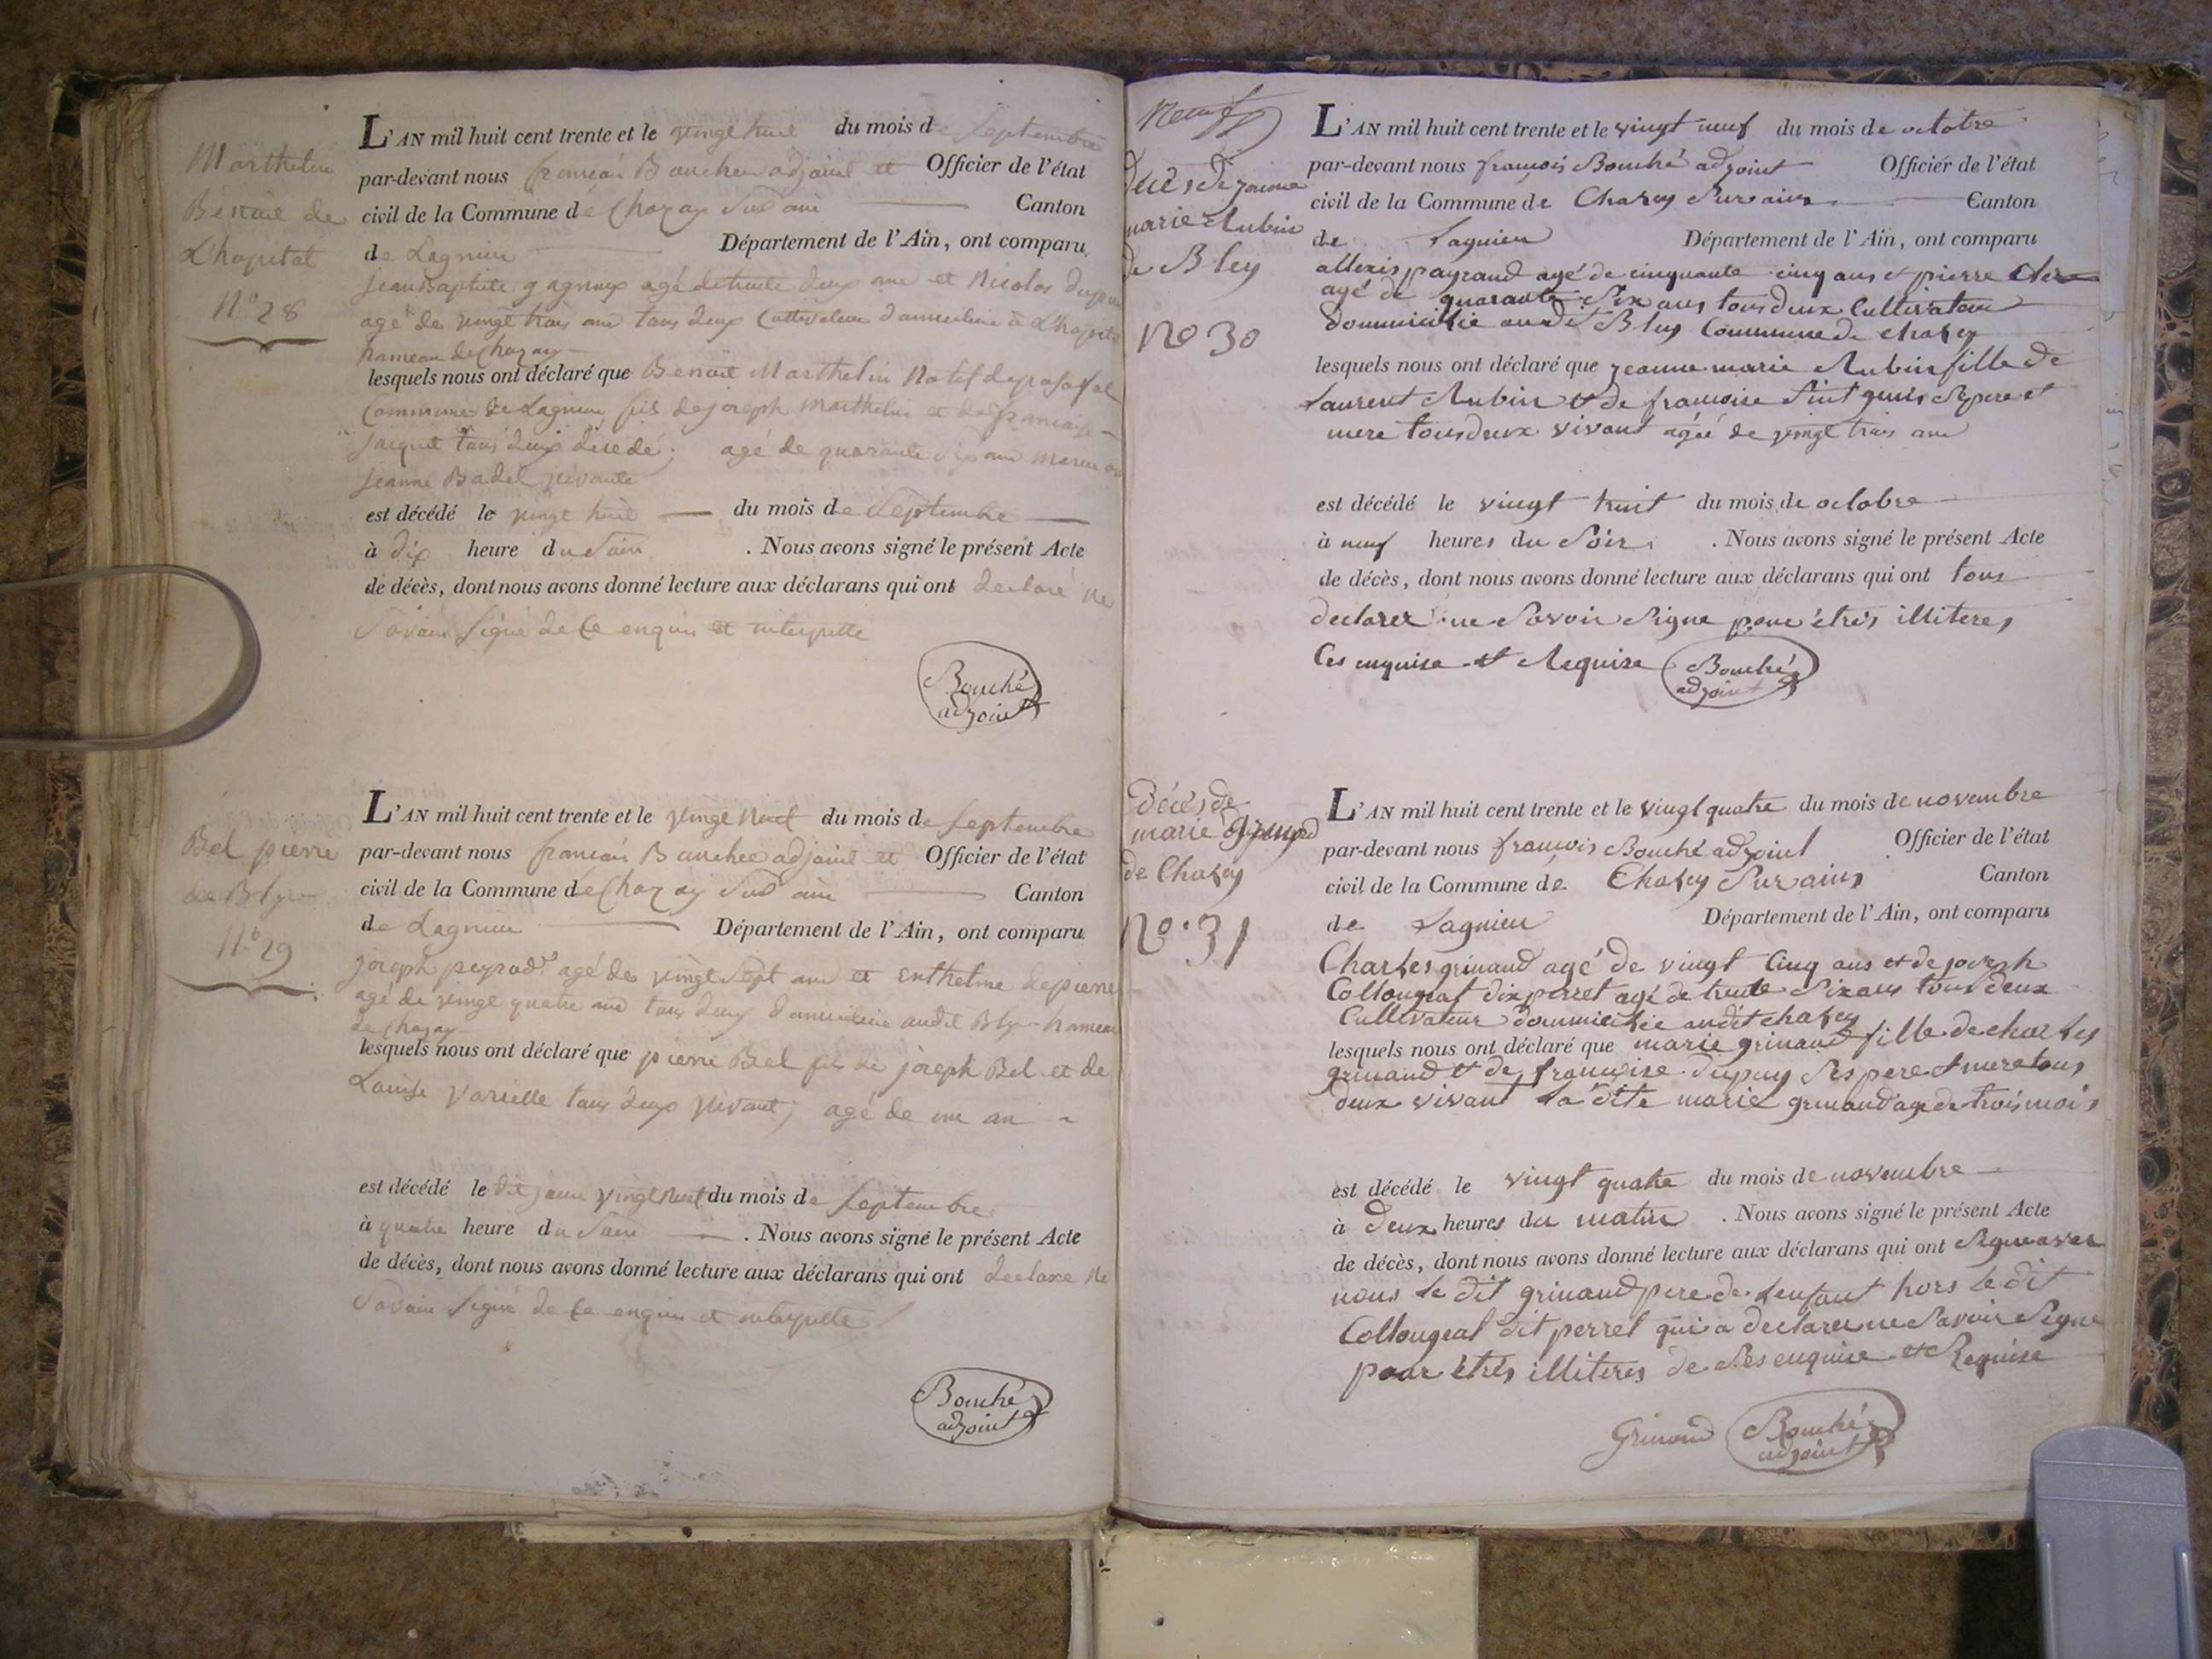 Marthelin
Benoit de
L'hopital
N° 28
L'AN mil huit cent trente et le vingt huit du mois de Septembre
par-devant nous francois Bouchee adjoint et Officier de l'état
civil de la Commune de Chazay Sur ain Canton
de Lagnieu Département de l'Ain, ont comparu
jean Baptiste gagneux agé de trente deux ans et Nicolas dupu
agé de vingt trois ans tous deux Cultivateur domicilie à L'hopital
hameau de Chazay
lesquels nous ont déclaré que Benoit Marthelin Natif de
Commune de Lagnieu fils de joseph Marthelin et de francoise
jacquet tous deux decedé; agé de quarante six ans
jeanne Badel vivante
est décédé le vingt huit du mois de Septembre
à dix heure du Soir . Nous avons signé le présent Acte
de décès, dont nous avons donné lecture aux déclarans qui ont declaré ne
Savoir Signé de ce enquis et interpelle
Bouché
adjoint
Bel pierre
de Bly
N° 29
L'AN mil huit cent trente et le vingt neuf du mois de Septembre
par-devant nous francois Bouchee adjoint et Officier de l'état
civil de la Commune de Chazay Sur ain Canton
de Lagnieu Département de l'Ain, ont comparu
joseph agé de vingt Sept ans et enthelme depierre
agé de vingt quatre ans tous deux domicilie audit Bly hameau
de chazay
lesquels nous ont déclaré que pierre Bel fils de joseph Bel et de
Louise Varielle tous deux vivant; agé de un an
est décédé le dit jour vingt neuf du mois de Septembre
à quatre heure du Soir . Nous avons signé le présent Acte
de décès, dont nous avons donné lecture aux déclarans qui ont declare ne
Savoir Signé de ce enquis et interpelle
Bouché
adjoint
Neuf
décès de jeanne
marie Aubin
de Bley
N° 30
L'AN mil huit cent trente et le vingt neuf du mois de octobre
par-devant nous francois Bouché adjoint Officier de l'état
civil de la Commune de Chazey Sur ains Canton
de Lagnieu Département de l'Ain, ont comparu
allexis payraud agé de cinquante cinq ans et pierre
agé de quarante Six ans tous deux Cultivateur
dommicilie audit Bley Commune de chazey
lesquels nous ont déclaré que jeanne marie Aubin fille de
Laurent Aubin et de francoise Ses pere et
mere tous deux vivant agéé de vingt trois ans
est décédé le vingt huit du mois de octobre
à neuf heures du Soir . Nous avons signé le présent Acte
de décès, dont nous avons donné lecture aux déclarans qui ont tous
declarer ne Savoir Signe pour étrés illiteres
Ces enquise et Requise Bouché
adjoint
décès de
marie grinand
de Chazey
N° 31
L'AN mil huit cent trente et le vingt quatre du mois de novembre
par-devant nous francois Bouché adjoint Officier de l'état
civil de la Commune de Chazey Sur ains Canton
de Lagnieu Département de l'Ain, ont comparu
Charles grinand agé de vingt Cinq ans et de joseph
Collougeat dix perret agé de trente Six ans tous deux
Cultivateur dommicilie audit chazey
lesquels nous ont déclaré que marie grinand fille de charles
grinand et de françoise dupuy Ses pere et mere tous
deux vivant la dite marie grinand age de trois mois
est décédé le vingt quatre du mois de novembre
à deux heures du matin . Nous avons signé le présent Acte
de décès, dont nous avons donné lecture aux déclarans qui ont Signe aver
nous le dit grinand pere de Lenfant hors le dit
Collougeat dit perret qui a declarer ne Savoir Signe
pour étrés illiteres de Ses enquise et Requise
Grinand Bouché
adjoint